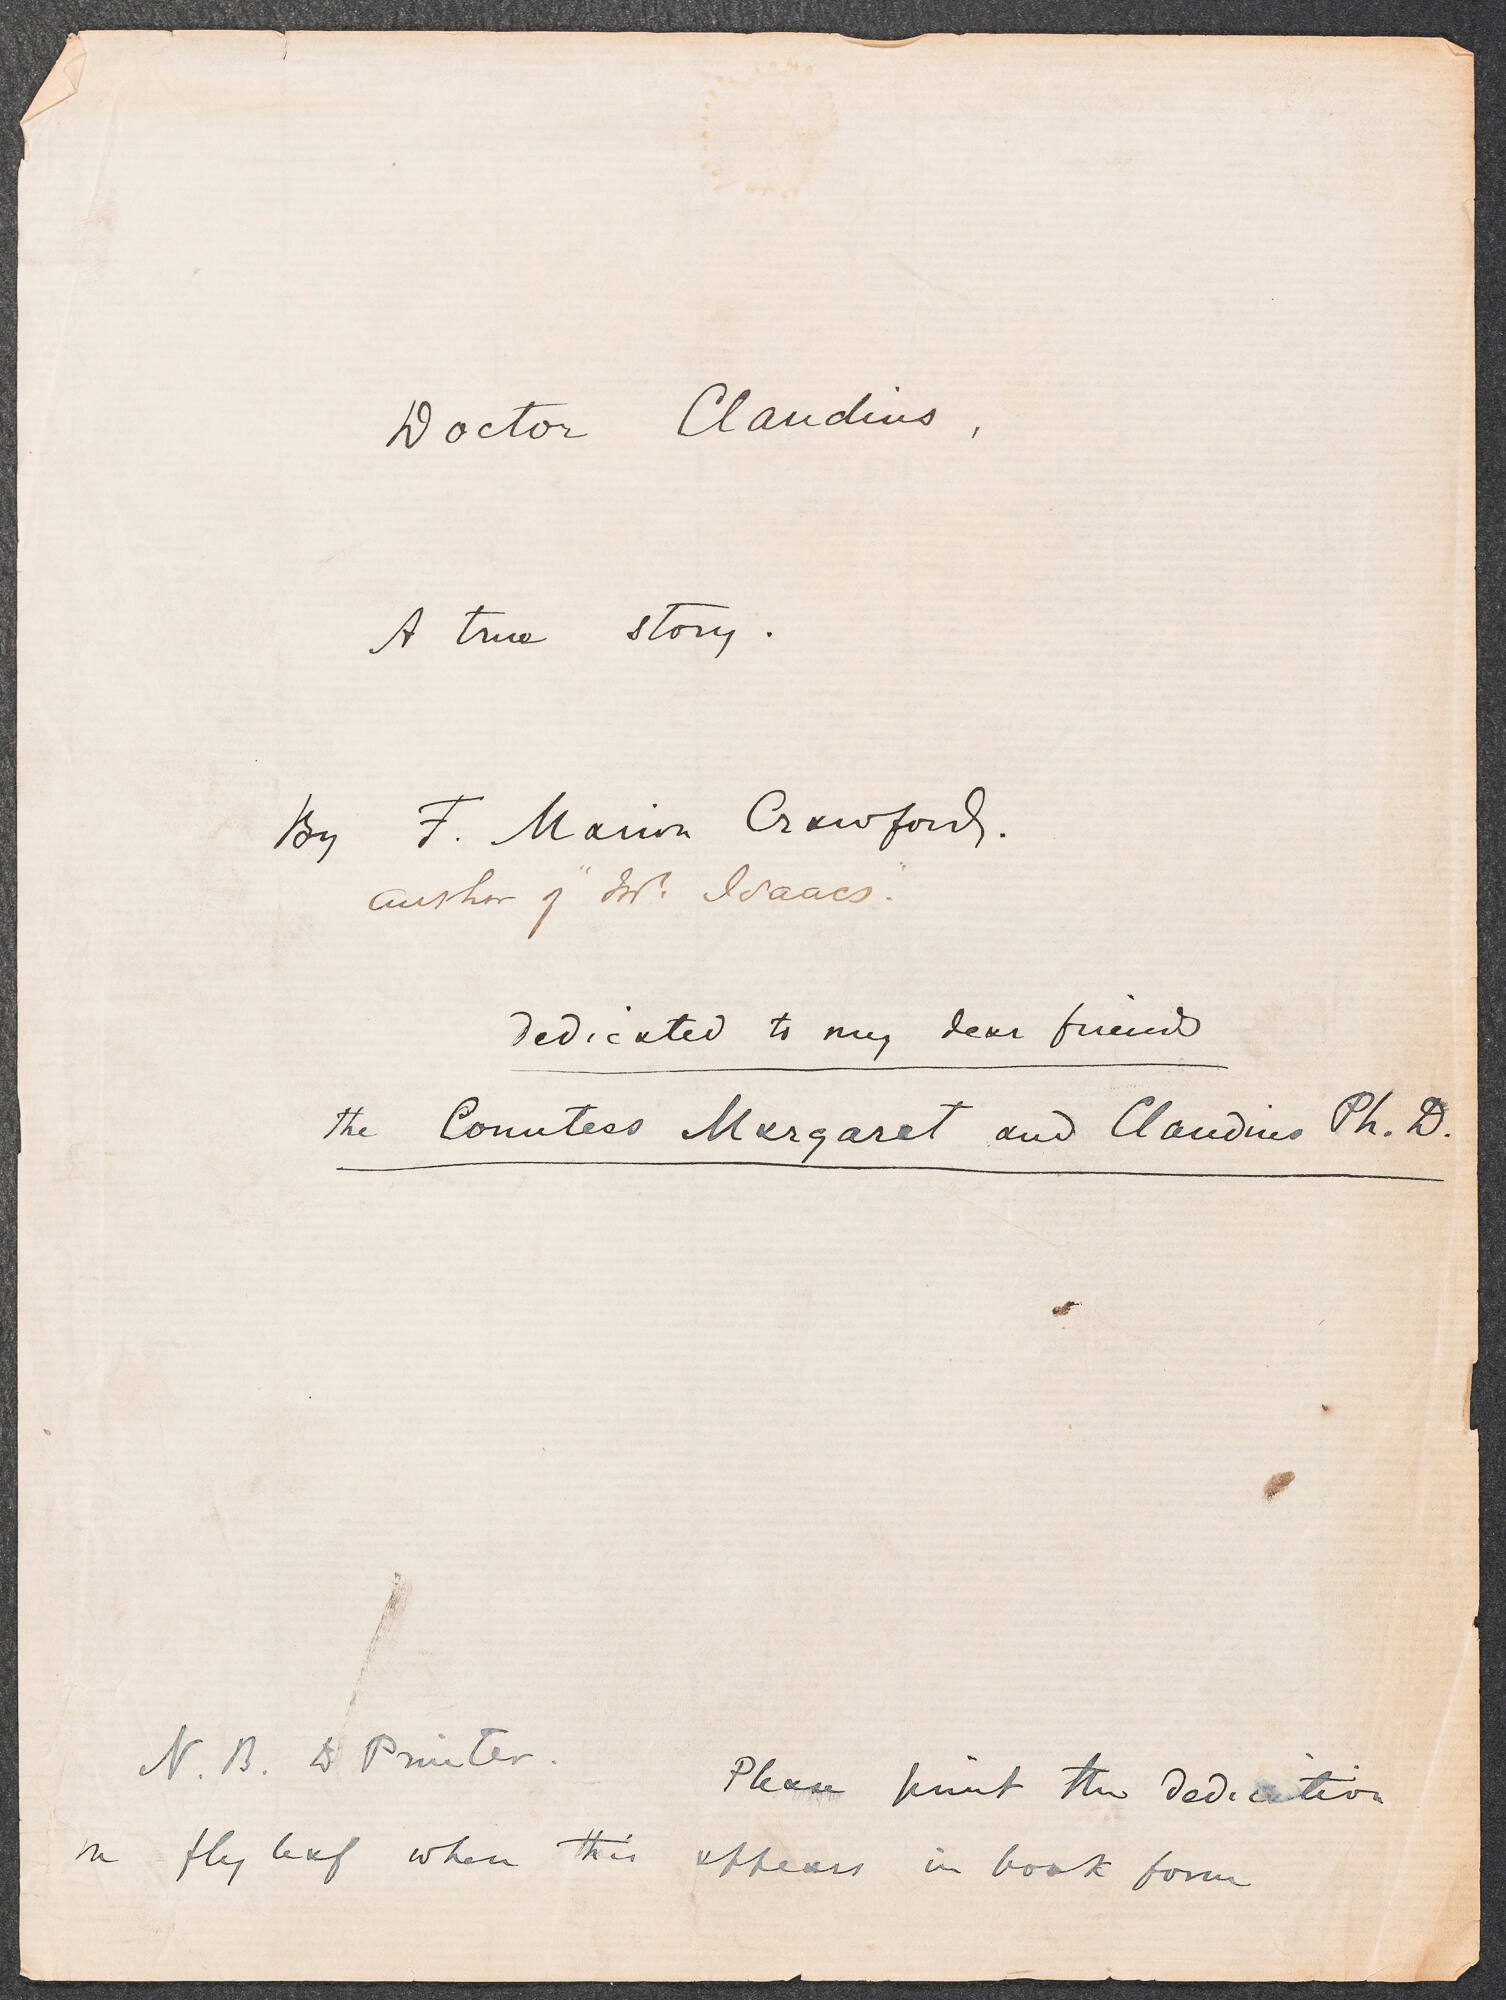 Doctor Claudius,
A true story.
By F. Marion Crawford.
author of "Mr. Isaacs".
dedicated to my dear friends
the Countess Margaret and Claudius Ph. D.
N. B. to Printer. Please print the dedication
on fly leaf when this appears in book form